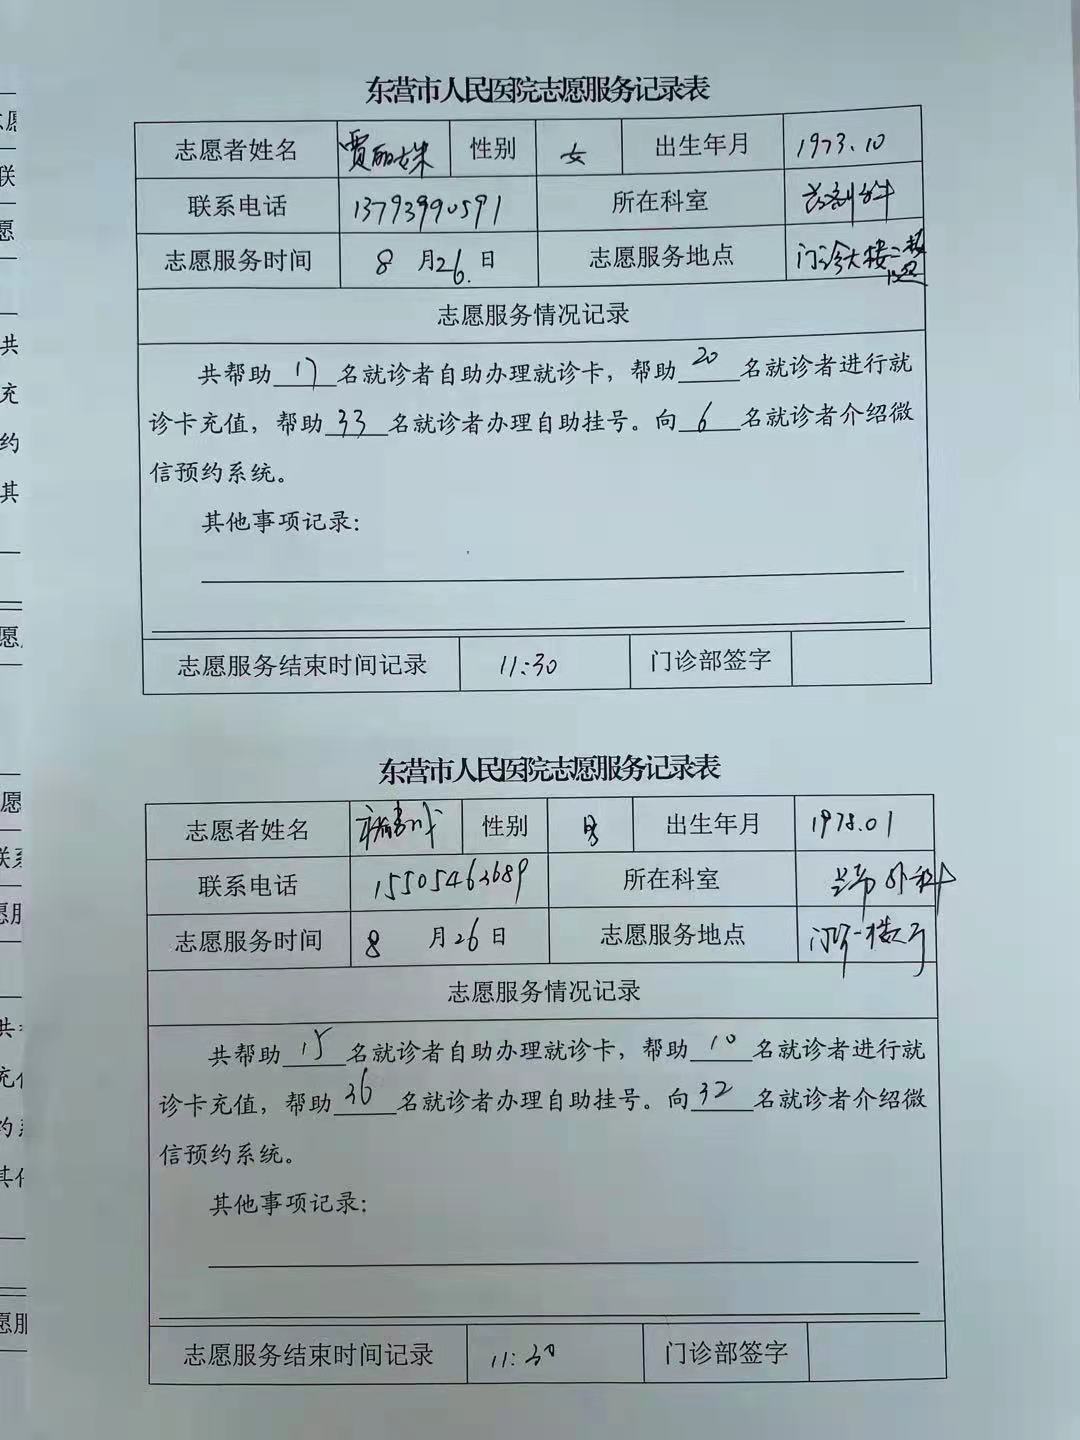 东营市人民医院志愿服务记录表
志愿者姓名 贾丽姝 性别 女 出生年月 1973.10
联系电话 13793990591 所在科室
志愿服务时间 8月26.日 志愿服务地点 门诊大楼二楼
志愿服务情况记录
共帮助17名就诊者自助办理就诊卡，帮助20名就诊者进行就
诊卡充值，帮助33名就诊者办理自助挂号。向6名就诊者介绍微
信预约系统。
其他事项记录：
志愿服务结束时间记录 11:30 门诊部签字
东营市人民医院志愿服务记录表
志愿者姓名 性别 男 出生年月 1978.01
联系电话 15505463689 所在科室 外科
志愿服务时间 8月26日 志愿服务地点 门诊一楼大厅
志愿服务情况记录
共帮助15名就诊者自助办理就诊卡，帮助10名就诊者进行就
诊卡充值，帮助36名就诊者办理自助挂号。向32名就诊者介绍微
信预约系统。
其他事项记录：
志愿服务结束时间记录 11:30 门诊部签字